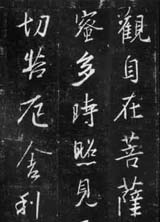 觀自在菩薩
蜜多時照見
切苦厄舍利